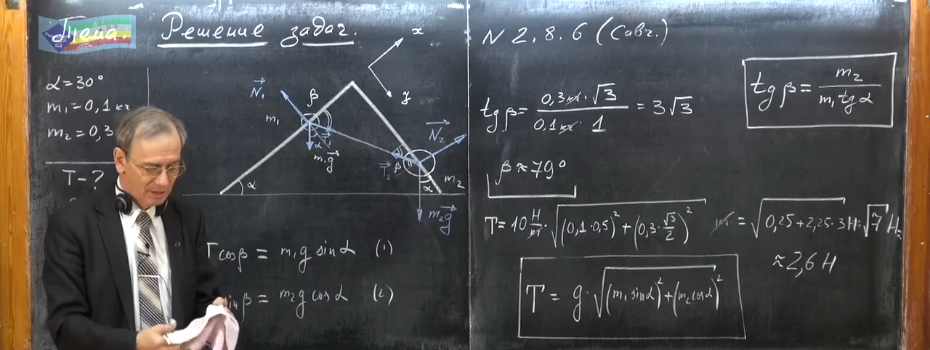 Тема. Решение задач.
α=30°
m₁=0,1 кг
m₂=0,3
T-?
x
y
N₁
β
m₁
α
m₁g
N₂
T₂
β
α
m₂
m₂g
α
T cosβ = m₁g sinα (1)
sinβ = m₂g cosα (2)
N 2.8.6 (Савч.)
tgβ = 0,3кг·√3 / 0,1кг·1 = 3√3
tgβ = m₂ / m₁ tgα
β ≈ 79°
T = 10 Н/кг · √((0,1·0,5)² + (0,3·√3/2)²) = √(0,25+2,25·3) Н = √7 Н ≈ 2,6 Н
T = g·√((m₁ sinα)² + (m₂ cosα)²)